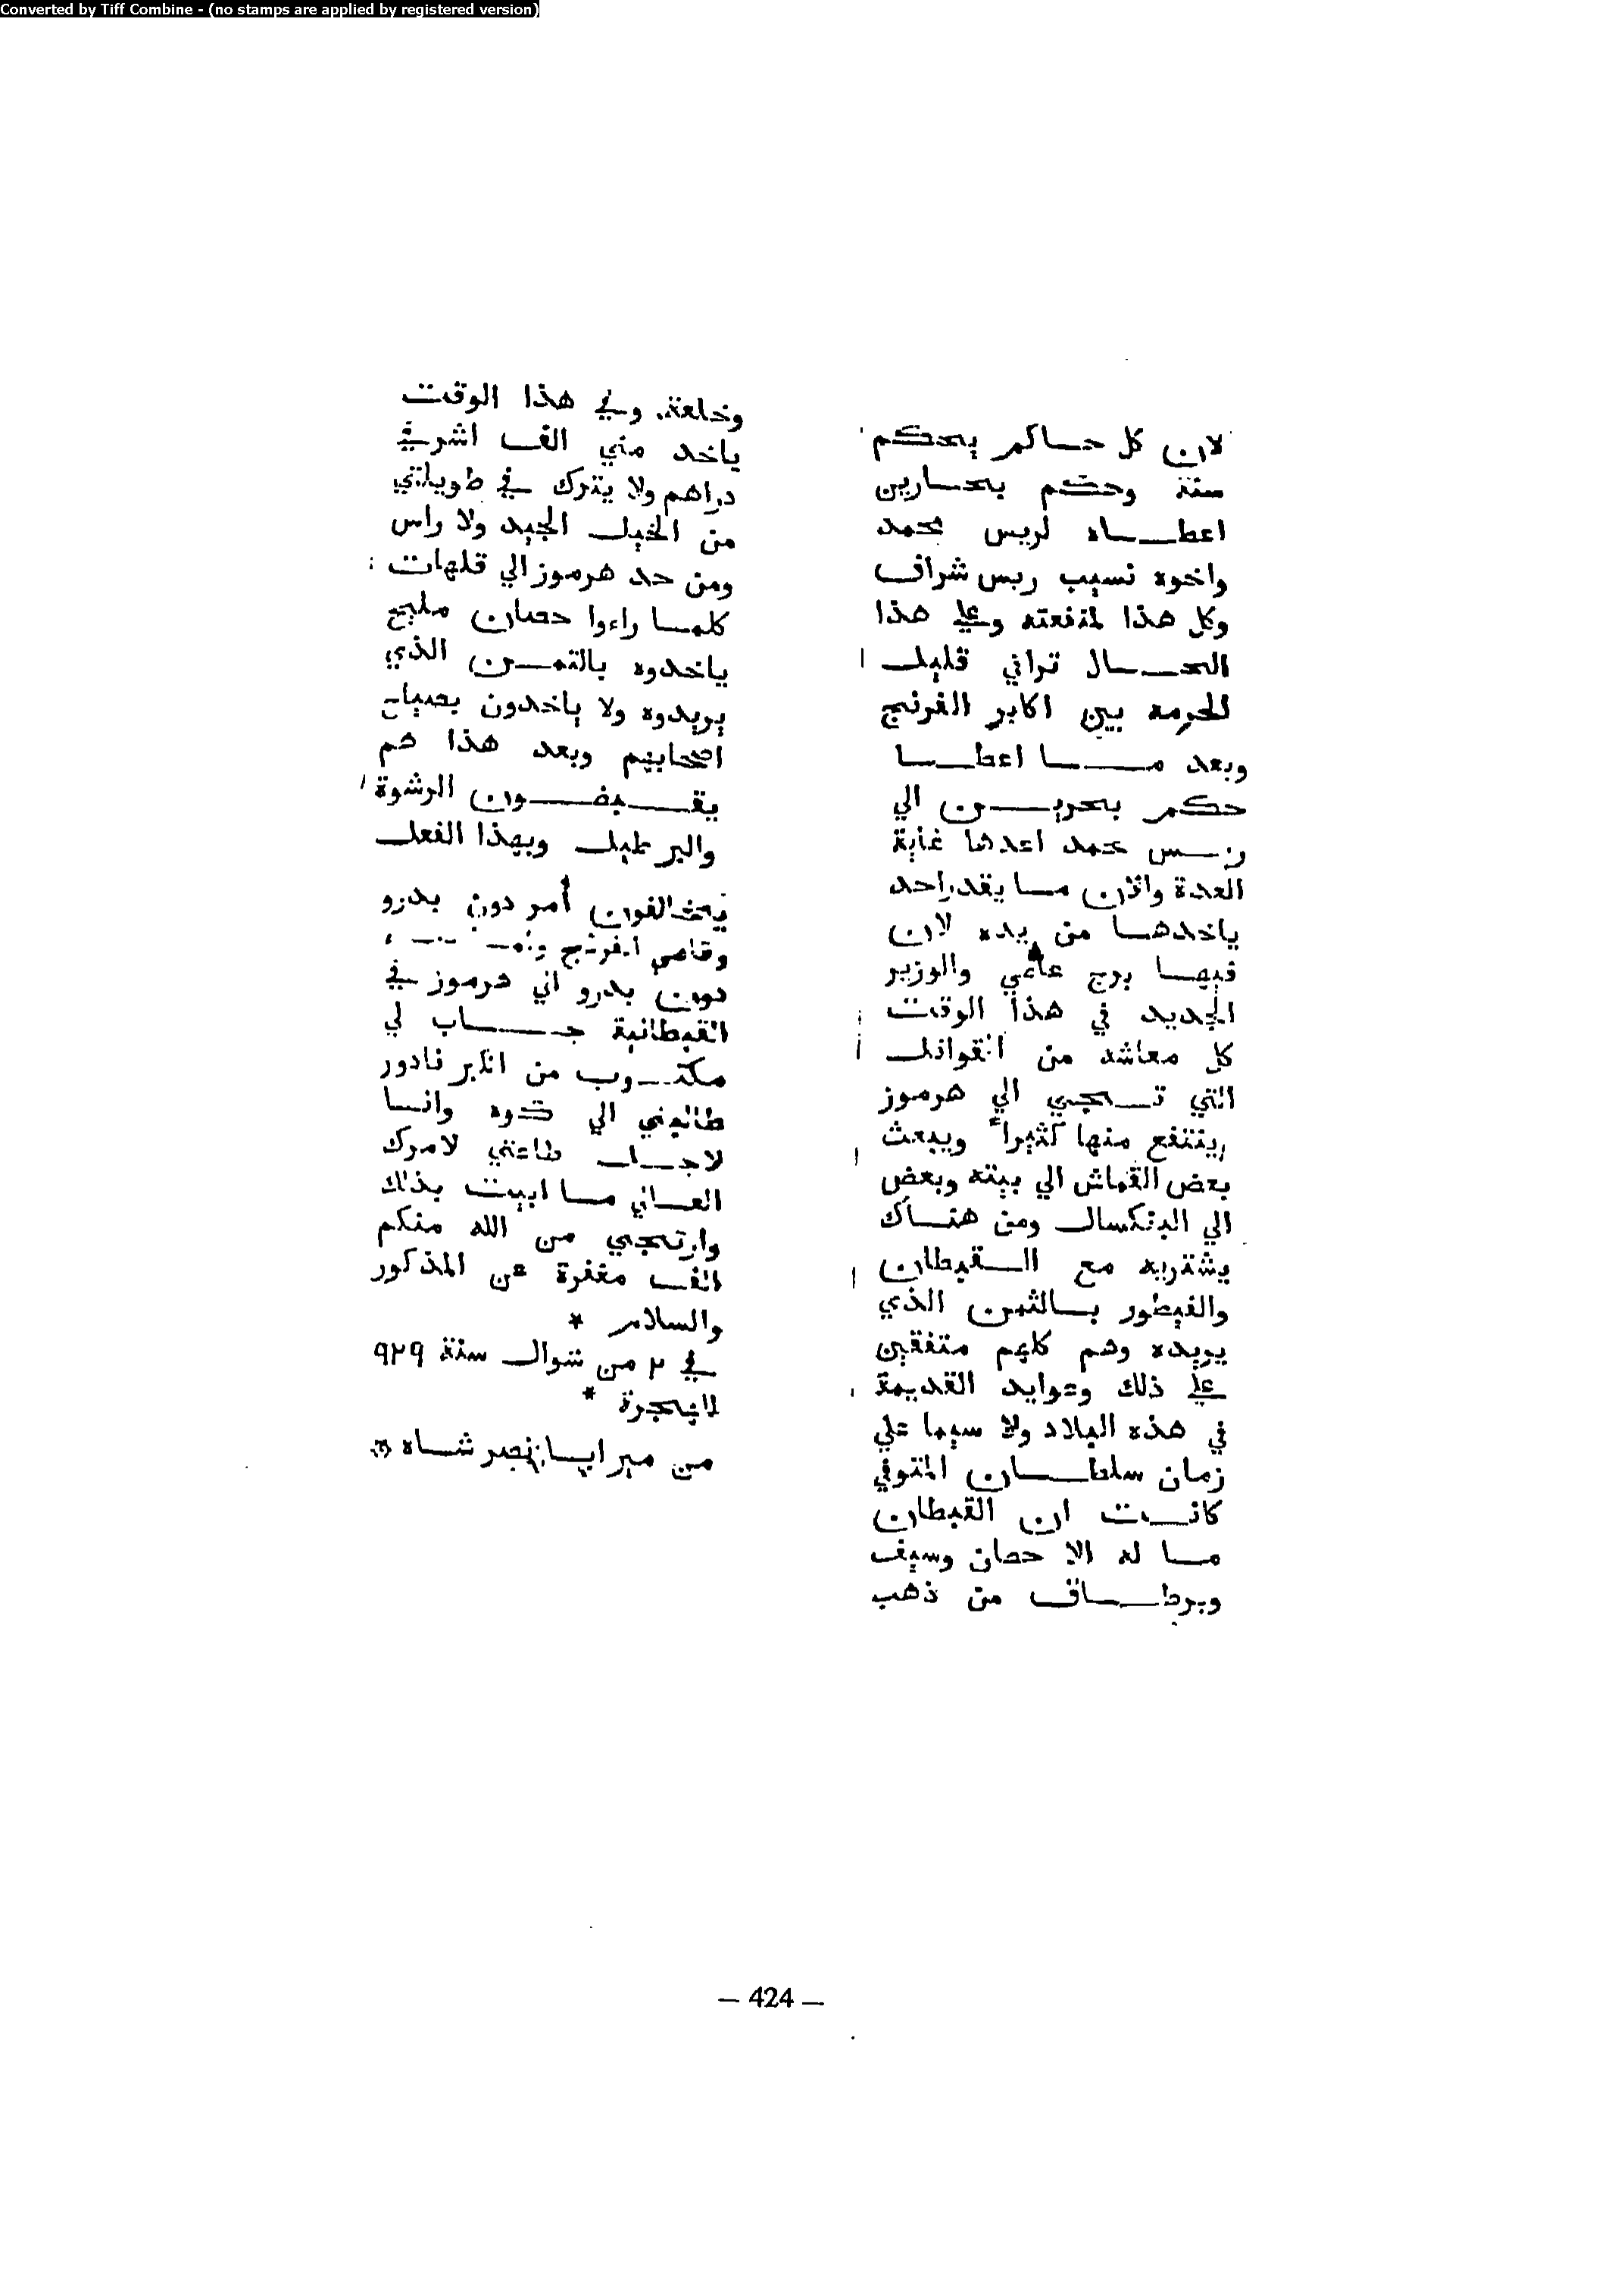 Converted by Tiff Combine - (no stamps are applied by registered version)
لان كل حاكم يحكم
سنة وحكم بحارين
اعطاه لريس محمد
واخوه نسيب ريس شراف
وكل هذا لمنفعته وعلي هذا
الحال تراني قليل
الحرمه بين اكابر الفرنج
وبعد ما اعطا
حكم بحرين الي
ريس محمد اعدها غاية
العدة والان ما يقدر احد
ياخدها من يده لان
فيها برج عاصي والوزير
الجديد في هذا الوقت
كل معاشه من القوافل
التي تجي الي هرموز
وينتفع منها كثيرا ويبعث
بعض القماش الي بيته وبعض
الي البنكسال ومن هناك
يشتريه مع القبطان
والفيطور بالثمن الذي
يريده وهم كلهم متفقين
علي ذلك وعوايد القديمة
في هذه البلاد ولا سيما علي
زمان سلطان المتوفي
كانت ان القبطان
ما له الا حصان وسيف
وبرطاق من ذهب
وخلعة. وفي هذا الوقت
ياخد مني الف اشرفي
دراهم ولا يترك في طويلتي
من الخيل الجيد ولا راس
ومن حد هرموز الي قلهات
كلما راءوا حصان مليح
ياخدوه بالتمن الذي
يريدوه ولا ياخدون بصياح
اصحابهم وبعد هذا هم
يقبضون الرشوة
والبرطيل وبهذا الفعل
يخالفون أمر دون بدرو
وقاضي الفرنج
دون بدرو الي هرموز في
القبطانية جاب لي
مكتوب من انبر نادور
طالبني الي كوه وانا
لاجل طاعتي لامرك
العالي ما ابيت بذلك
وارتجي من الله منكم
الف مغفرة عن المذكور
والسلام *
في ٢ من شوال سنة ٩٢٩
للهجرة *
من مير ابا نصر شاه
— 424 —